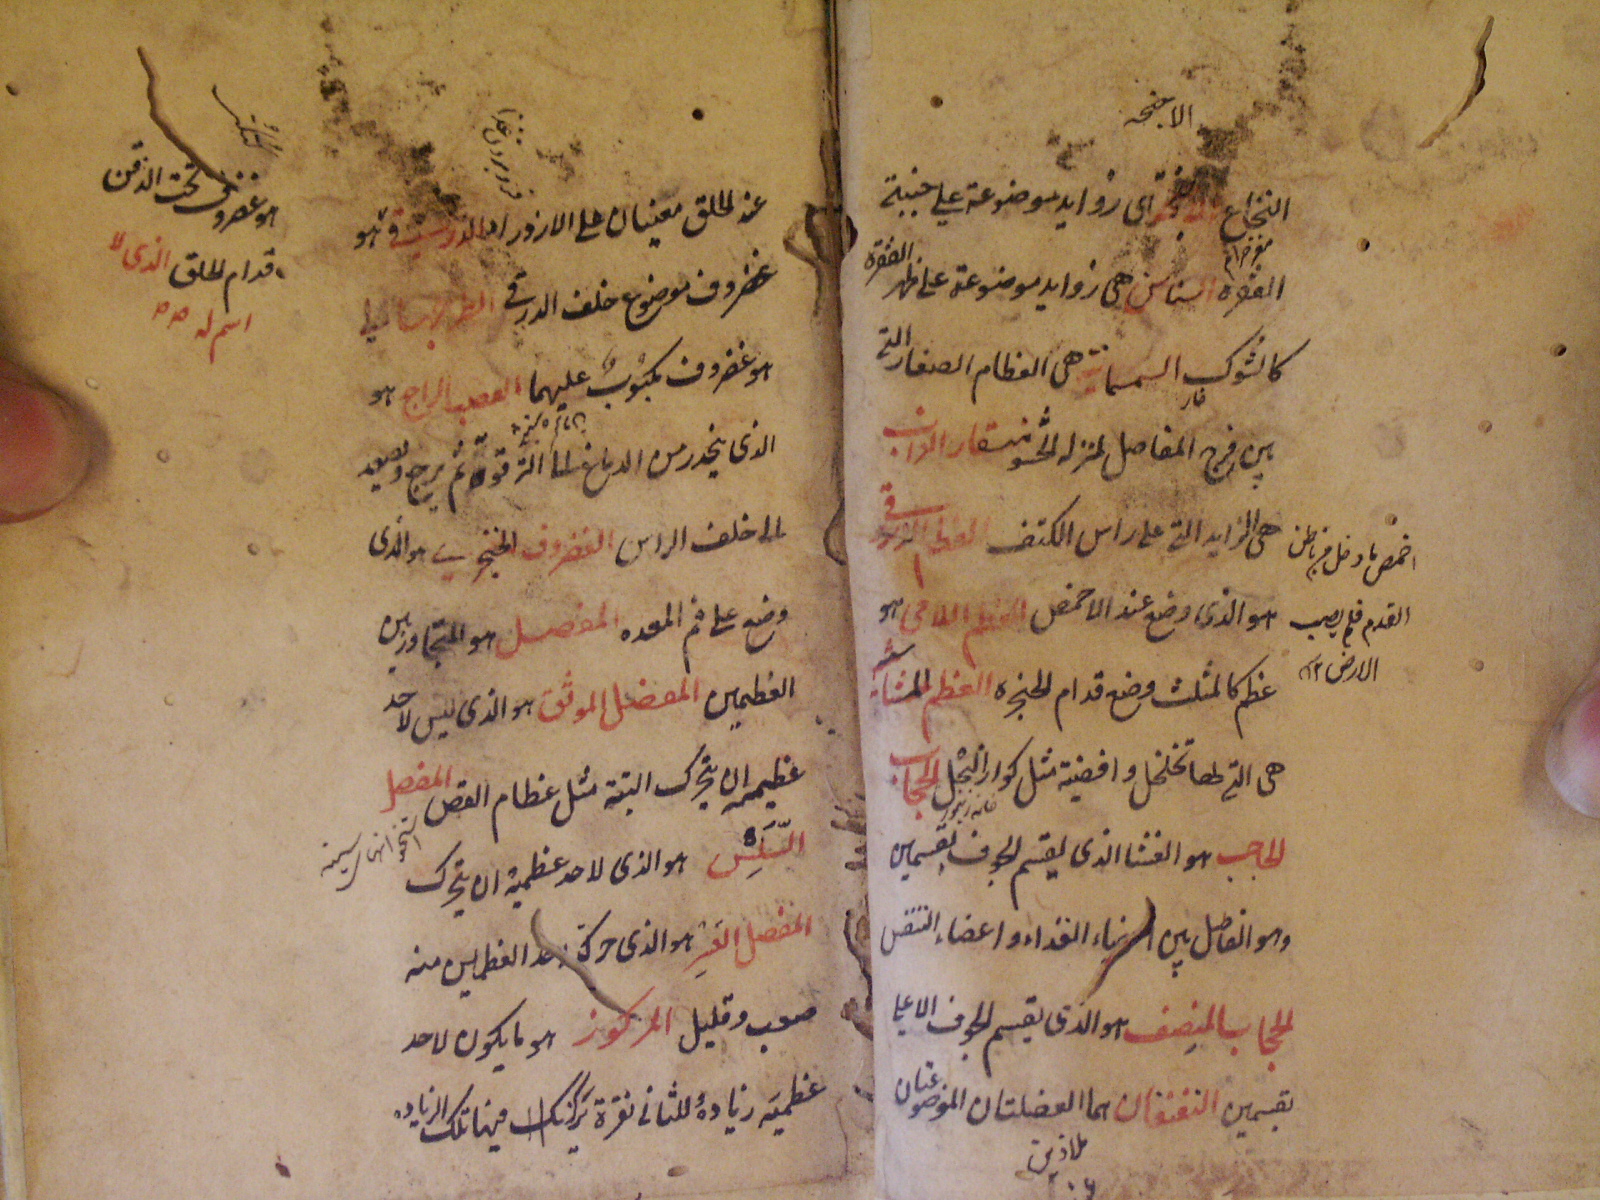 الاجنحه
النخاع اى زوايد موضوعة على جنبة
الفقره السناسن هى زوايد موضوعة على ظهر الفقره
كالشوك السمسمانية هى العظام الصغار التى
بين فرج المفاصل لمنزله الحشو منقار الغراب
هى الزايد التى على راس الكتف العظم الزورقى
هو الذى وضع عند الاخمص العظم اللامى هو
عظم كالمثلث وضع قدام الحنجره العظم المشاشة
هى التى لها تخلخل وافضية مثل كواير النحل الحجاب
خانه زنبور
الحاجب هو الغشا الذى يقسم الجوف بقسمين
وهو الفاصل بين الغذاء واعضاء التنفس
الحجاب المنصف هو الذى يقسم الجوف الاعلى
بقسمين النغنغان هما العضلتان الموضوعتان
ملاذين
اخمص ما دخل من باطن
القدم فلم يصب
الارض ١٢
عند الحلق معينان على الازدراد الدرقى هو
غضروف موضوع خلف الدرقى الطرجهالى
هو غضروف مكبوب عليهما العصب الراجع هو
الذى ينحدر من الدماغ الى الترقوة ثم يرجع ويصعد
الى خلف الراس الغضروف الخنجرى هو الذى
وضع على فم المعده المفصل هو المتجاور بين
العظيمين المفصل الموثق هو الذى ليس لاحد
عظيميه ان يتحرك البتة مثل عظام القص المفصل
السلس هو الذى لاحد عظميه ان يتحرك
المفصل العسر هو الذى حركة احد العظمين منه
صعب وقليل المركوز هو ما يكون لاحد
عظميه زيادة وللثانى نقرة يرتكز فيها تلك الزياده
هو غضروف تحت الذقن
قدام الحلق الذى لا
اسم له
استخوانهاى سينه